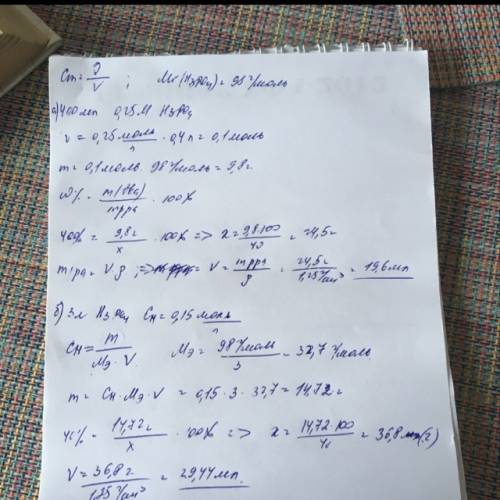 Cm = ν/V ; Mr(H₃PO₄) = 98 г/моль
а) 400 мл 0,25 М H₃PO₄
ν = 0,25 моль/л · 0,4 л = 0,1 моль
m = 0,1 моль · 98 г/моль = 9,8 г.
ω% = m(в-ва)/mр-ра · 100%
40% = 9,8 г/x · 100% => x = 9,8·100/40 = 24,5 г
mр-ра = V·ρ ; => V = mр-ра/ρ = 24,5 г/1,25 г/см³ = 19,6 мл
б) 3 л H₃PO₄ Cн = 0,15 моль/л
Cн = m/Mэ·V Mэ = 98 г/моль/3 = 32,7 г/моль
m = Cн·Mэ·V = 0,15·3·32,7 = 14,72 г
40% = 14,72 г/x · 100% => x = 14,72·100/40 = 36,8 (г)
V = 36,8 г/1,25 г/см³ = 29,44 мл